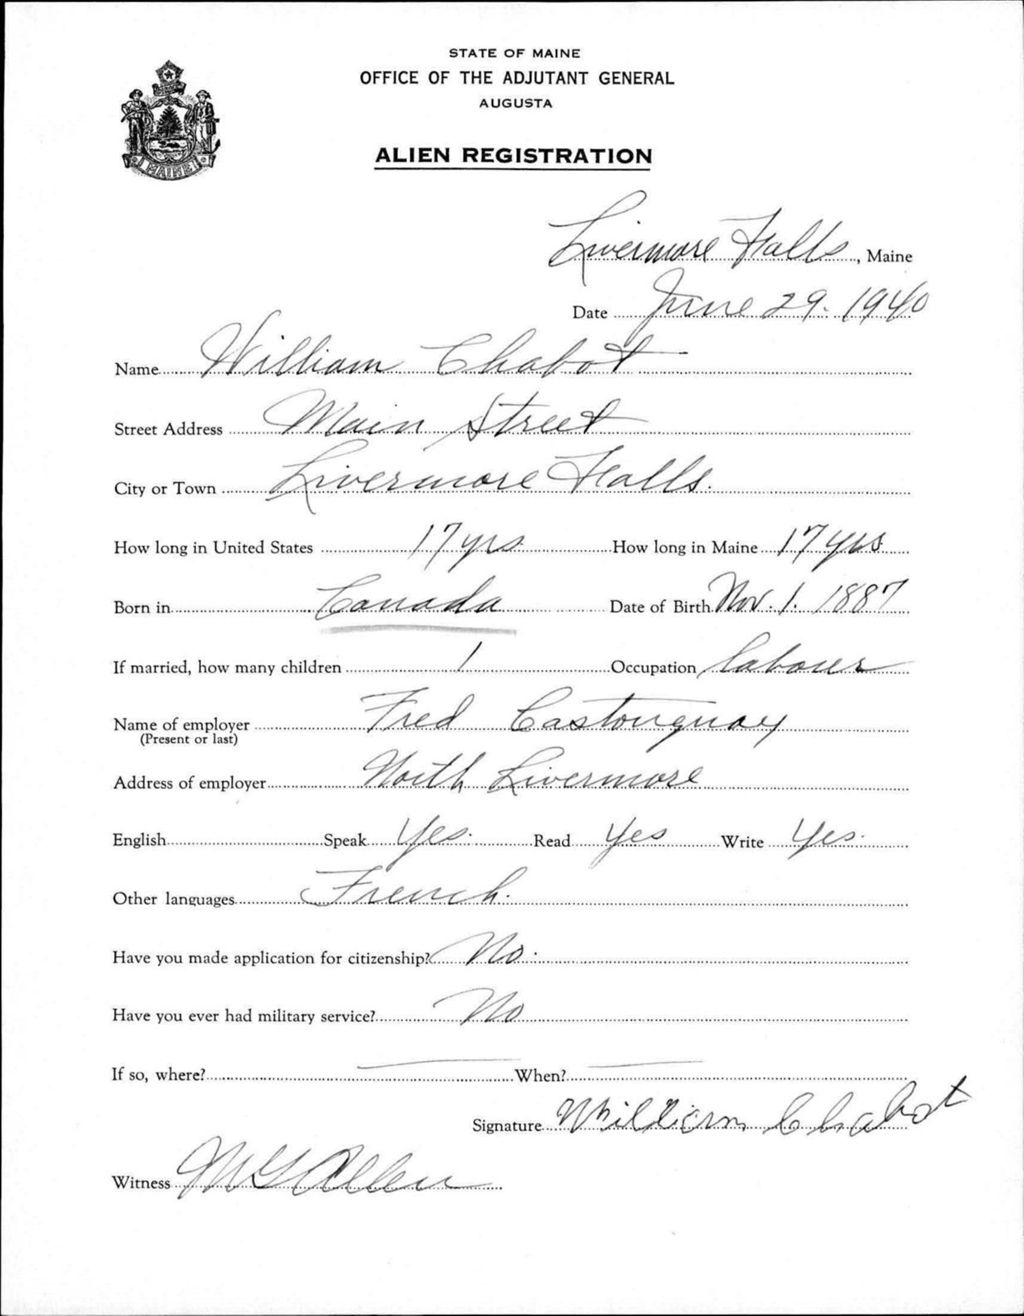 STATE OF MAINE
OFFICE OF THE ADJUTANT GENERAL
AUGUSTA
ALIEN REGISTRATION
MAINE
Livermore Falls, Maine
Date June 29. 1940
Name William Chabot
Street Address Main Street
City or Town Livermore Falls.
How long in United States 17 yrs How long in Maine 17 yrs
Born in Canada Date of Birth Nov. 1. 1887
If married, how many children 1 Occupation labourer
Name of employer Fred Castonguay
(Present or last)
Address of employer North Livermore
English Speak Yes. Read Yes Write Yes.
Other languages French.
Have you made application for citizenship? No.
Have you ever had military service? No
If so, where? — When? —
Signature William Chabot
Witness Allen